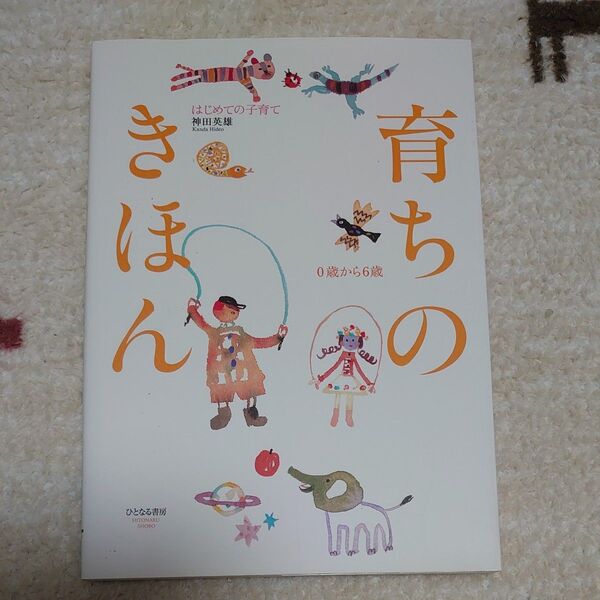 育ちの
きほん
はじめての子育て
神田英雄
Kanda Hideo
0歳から6歳
ひとなる書房
HITONARU
SHOBO